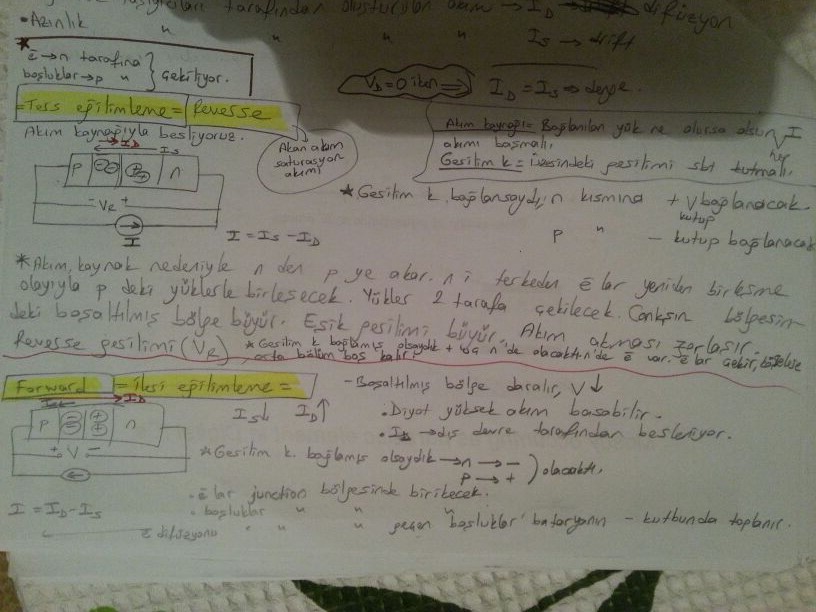 tarafından oluşturulan akım → ID → difüzyon
• Azınlık " " " " IS → drift
ē → n tarafına
boşluklar → p " } çekiliyor.
VD = 0 iken ⇒ ID = IS ⇒ denge.
= Ters eğilimleme = Reverse
Akım kaynağıyla besliyoruz.
Akan akım
saturasyon
akımı
Akım kaynağı = Bağlanılan yük ne olursa olsun her I
akımı basmalı,
Gerilim k = üzerindeki gerilimi sbt tutmalı.
ID
IS
p n
- VR +
I
I = IS - ID
* Gerilim k. bağlansaydı, n kısmına + V bağlanacak.
kutup
p " - kutup bağlanacak
* Akım, kaynak nedeniyle n den p ye akar. n i terkeden ē lar yeniden birleşme
olayıyla p deki yüklerle birleşecek. Yükler 2 tarafa çekilecek.
deki boşaltılmış bölge büyür. Eşik gerilimi büyür. Akım akması zorlaşır.
Reverse gerilimi (VR) * Gerilim k bağlamış olsaydık + uç n'de olacaktı n'de ē var. ē lar çekilir,
orta bölüm boş kalır.
Forward = ileri eğilimleme =
- Boşaltılmış bölge daralır, V↓
IS ID
p n
+ V -
IS↓ ID↑
• Diyot yüksek akım basabilir.
• ID → dış devre tarafından besleniyor.
* Gerilim k. bağlamış olsaydık → n → -
p → + ) olacaktı.
• ē lar junction bölgesinde birikecek.
I = ID - IS
• boşluklar " " "
difüzyonu • " " geçen boşluklar bataryanın - kutbunda toplanır.